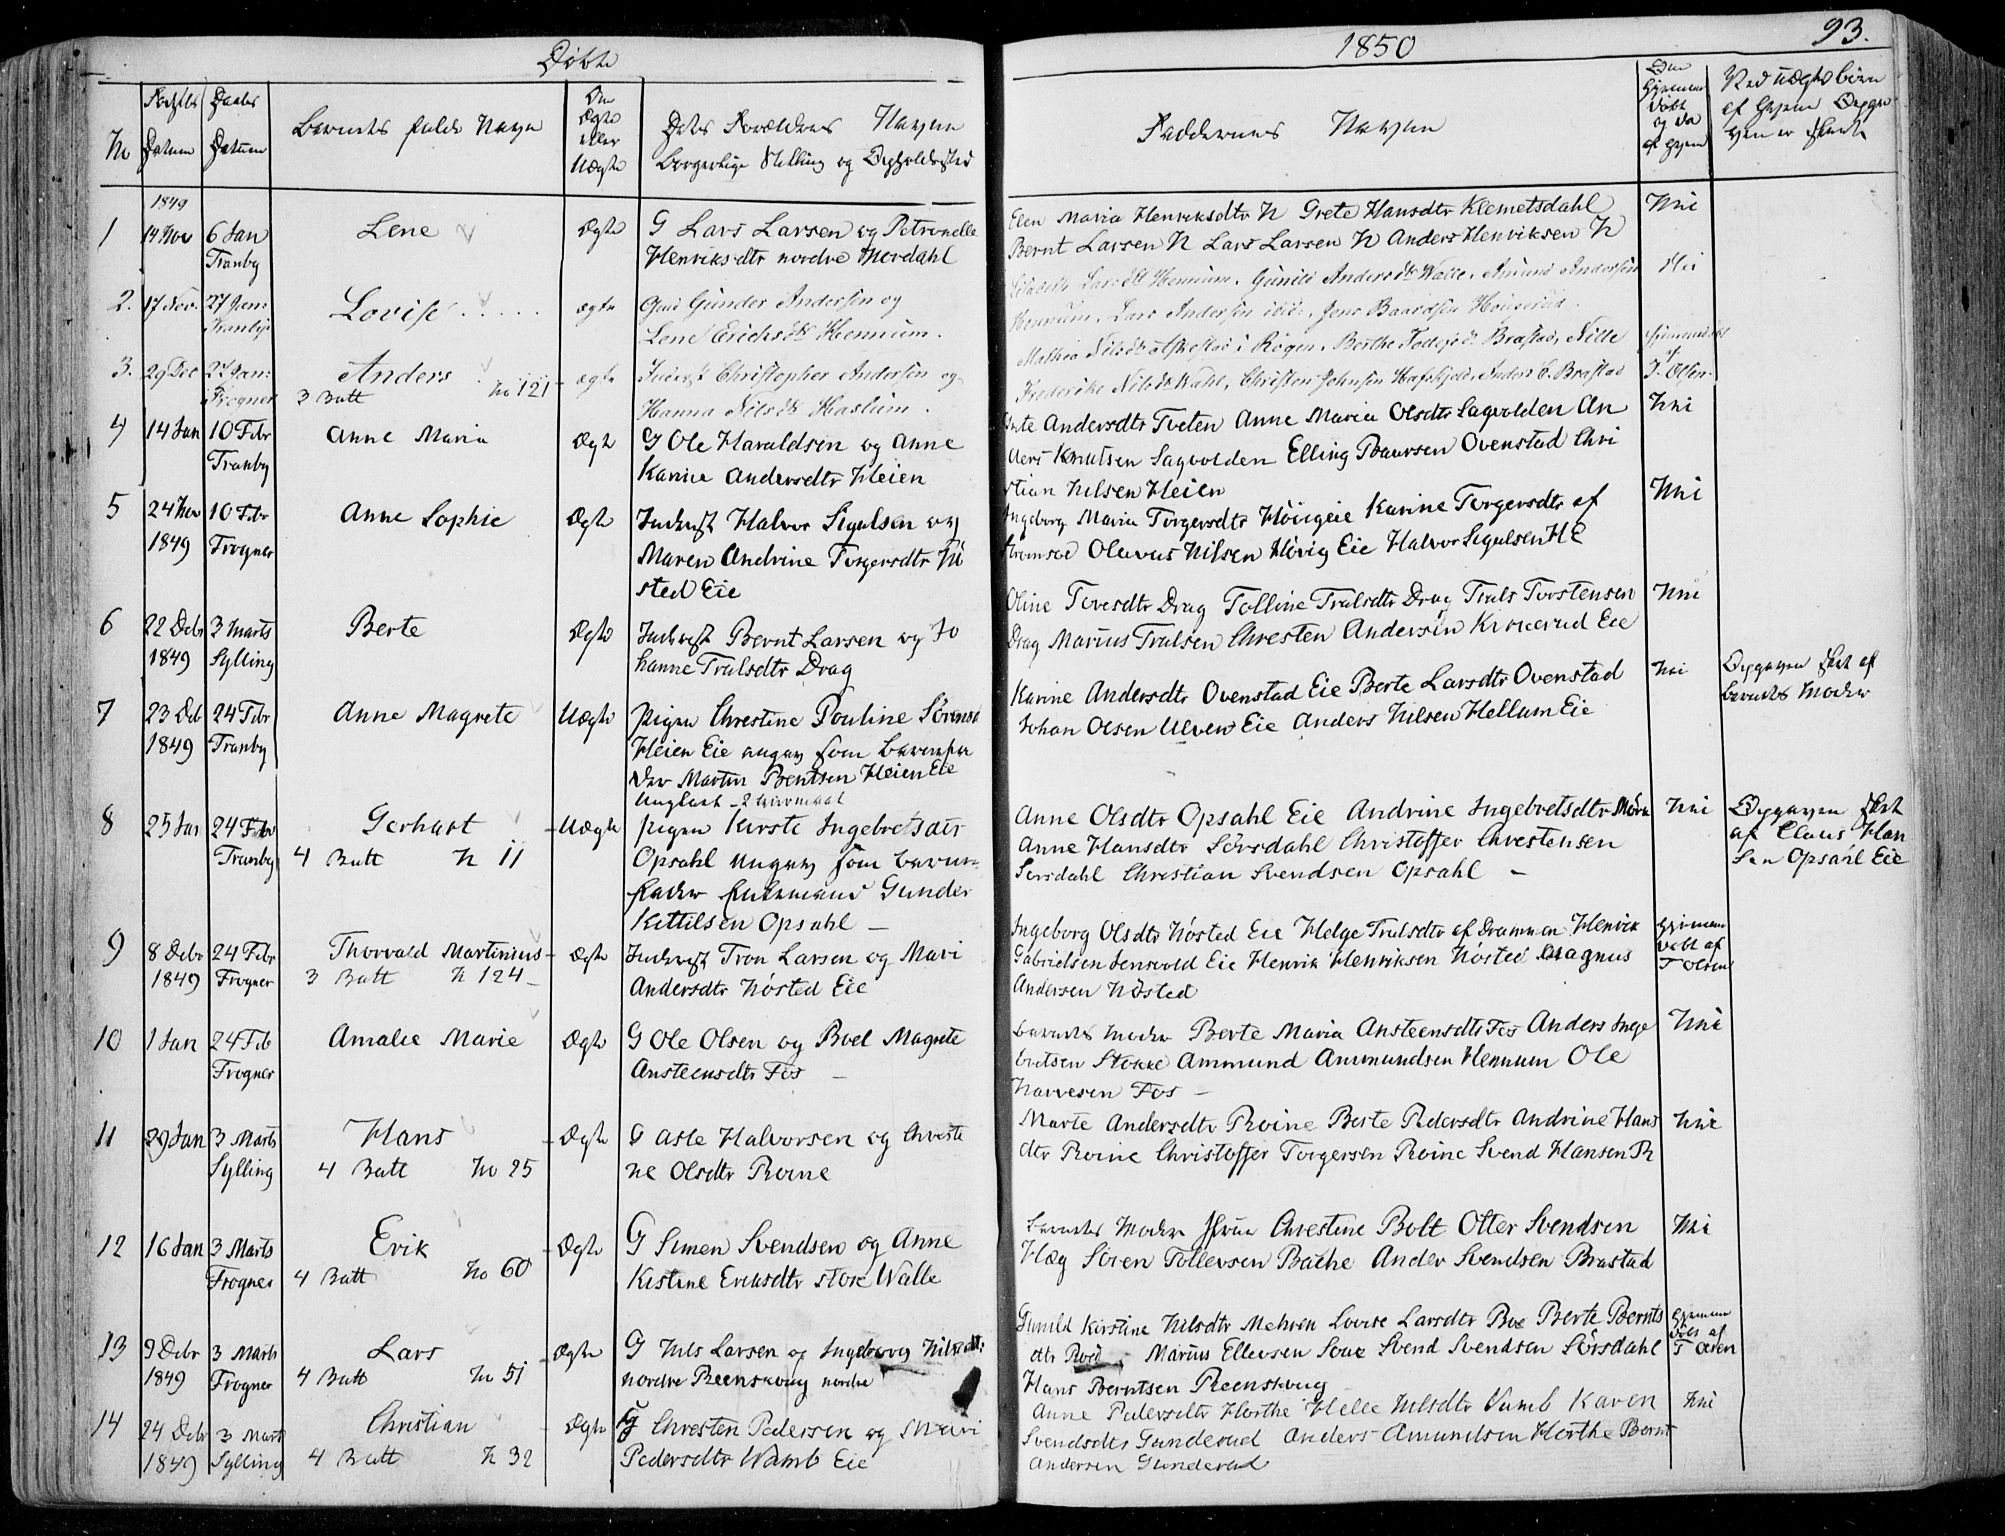 Døbte
1850
93.
No
Fødsels Datum
Daabs Datum
Barnets fulde Navn
Om Ægte eller Uægte
Dets Forældres Navne
Borgerlige Stilling og Opholdssted
Faddernes Navne
Om hjemmedøbt og da af hvem
Ved uægte børn af hvem Opgaven er skeet
1849
1 14 Nov 6 Jan Tranby
Lene
Ægte
G Lars Larsen og Petronelle
Henriksdtr nordre Mordahl
Elen Maria Henriksdtr N Grete Hansdtr Klemetsdahl
Bernt Larsen N Lars Larsen N Anders Henriksen N
Nei
2. 17 Nov. 27 Jan: Tranby
Lovise
ægte
Gmd Gunder Andersen og
Lene Ericksdtr Hennum.
Larsdtr Hennum, Gunild Andersdtr Walle, Amund Andersen
Hennum, Lars Andersen ibid:, Jens Baardsen
Nei
3. 29 Dec 27 Jan: Frogner
Anders
3 Batt No 121
ægte
Inderst Christopher Andersen og
Hanna Nilsdtr Haslum.
Mathea Nilsdtr i Røgen, Berthe Brastad, Nille
Frederike Nilsdtr Wahl, Christen Johnsen Anders C. Brastad
Hjemmedøbt af J. Olsen
4 14 Jan 10 Febr Tranby
Anne Maria
Ægte
G Ole Haraldsen og Anne
Karine Andersdtr Heien
Andersdtr Tveten Anne Maria Olsdtr Sagvolden An
ders Knutsen Sagvolden Elling Paaversen Ovenstad Chri
stian Nilsen Heien
Nei
5 24 Nov 1849 10 Febr Frogner
Anne Sophie
Ægte
Inderst Halvor Sigulsen og
Maren Andrine Torgersdtr Nö
sted Eie
Ingeborg Maria Torgersdtr Hövigeie Karine Torgersdtr af
Strømsøe Olavus Nilsen Hövig Eie Halvor Sigulsen H E
Nei
6 22 Debr 1849 3 Marts Sylling
Berte
Ægte
Inderst Bernt Larsen og Jo
hanne Trulsdtr Drag
Oline Toresdtr Drag Tolline Trulsdtr Drag Truls Torstensen
Drag Marius Trulsen Chresten Andersen Krokerud Eie
Nei
7 23 Db 1849 24 Febr Tranby
Anne Magrete
Uægte
Pigen Chrestine Pouline Sörens
Heien Eie angav som Barnefa
der Martin Bentsen Heien Eie
Ungkarl - 2
Karine Andersdtr Ovenstad Eie Berte Larsdtr Ovenstad
Johan Olsen Ulven Eie Anders Nilsen Hellum Eie
Nei
Opgaven skeet af
barnets Moder
8 25 Jan 24 Febr Tranby
Gerhart
4 Batt N 11
Uægte
Pigen Kirste Ingebretsdtr
Opsahl angav som Barne
fader Enkemand Gunder
Kittilsen Opsahl —
Anne Olsdtr Opsahl Eie Andrine Ingebretsdtr
Anne Hansdtr Sörsdahl Christoffer Chrestensen
Sorsdahl Christian Svendsen Opsahl —
Nei
Opgaven skeet
af Claus Han
sen Opsahl Eie
9 8 Debr 1849 24 Febr Frogner
Thorvald Martinius
3 Batt N 124
Ægte
Inderst Tron Larsen og Mari
Andersdtr Nösted Eie
Ingeborg Olsdtr Nösted Eie Helge Trulsdtr af Drammen Henrik
Gabrielsen Eie Henrik Henriksen Nösted Magnus
Andersen Nösted
Hjemmedøbt af T Olsen
10 1 Jan 24 Feb Frogner
Amalie Marie
Ægte
G Ole Olsen og Boel Magrete
Ansteensdtr Fos —
Barnets Moder Berte Maria Ansteensdtr Fos Anders Inge
bretsen Stokke Ammund Ammundsen Hennum Ole
Narvesen Fos —
Nei
11 29 Jan 3 Marts Sylling
Hans
4 Batt No 25
Ægte
G Asle Halvorsen og Chresti
ne Olsdtr Roine
Marte Andersdtr Roine Berte Pedersdtr Andrine Hans
dtr Roine Christoffer Torgersen Roine Svend Hansen R
Nei
12 16 Jan 3 Marts Frogner
Erik
4 Batt No 60
Ægte
G Simen Svendsen og Anne
Kistine Eriksdtr store Walle
Barnets Moder Frue Chrestine Bolt Otter Svendsen
Hæg Sören Tollevsen Bache Ander Svendsen Brastad
Nei
13 9 Debr 1849 3 Marts Frogner
Lars
4 Batt No 51
Ægte
G Nils Larsen og Ingeborg Nilsdtr
nordre Reenskoug nordre
Gunild Kirstine Nilsdtr Mehren Lovise Larsdtr Boe Berte Bernts
dtr Marius Ellevsen Svend Svendsen Sörsdahl
Hans Berntsen Reenskoug
Hjemmedøbt af T Olsen
14 24 Debr 1849 3 Mart Sylling
Christian
4 Batt N 32
Ægte
G Chresten Pedersen og Mari
Pedersdtr Wamb Eie
Anne Pedersdtr Horthe Helle Nilsdtr Vamb Karen
Svendsdtr Gunderud Anders Amundsen Horthe Bernt
Andersen Gunderud
Nei